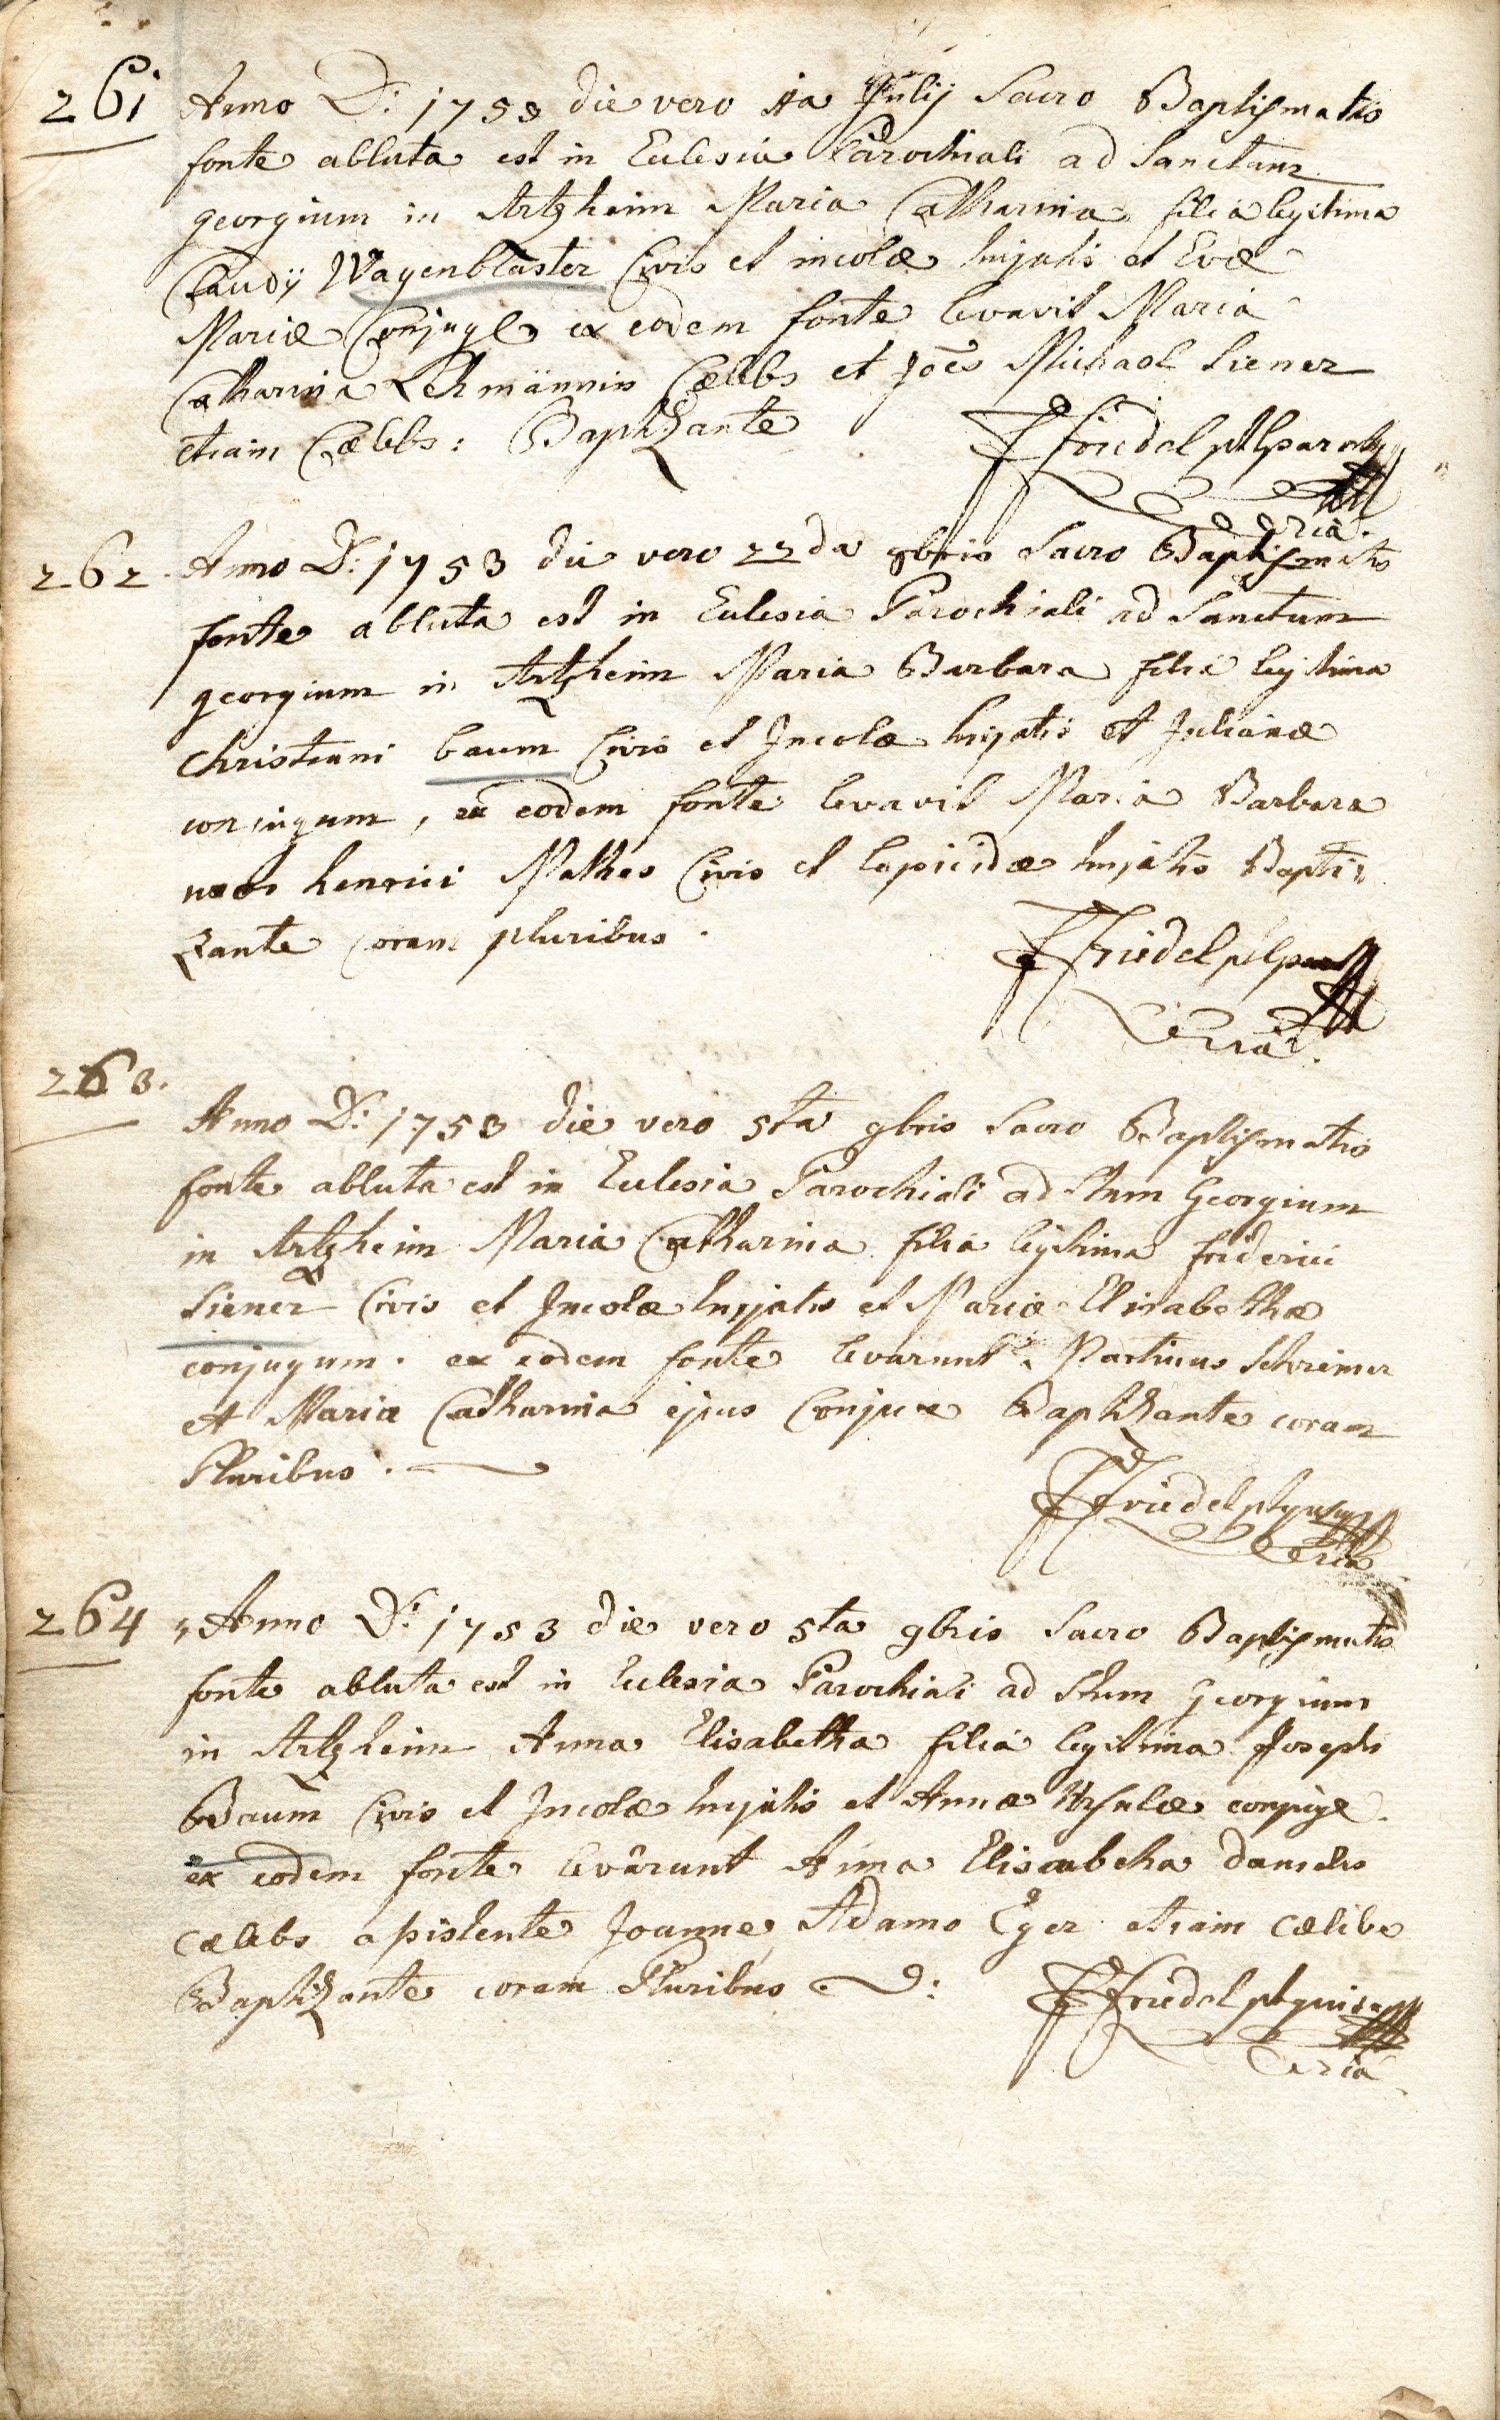 261 Anno D: 1753 die vero 1ia Julij Sacro Baptismatis
fonte abluta est in Eclesia Parochiali ad Sanctum
georgium in Artzheim Maria Catharina filia legitima
Claudij Wagenblaster Civis et incolæ hujatis et Evæ
Mariæ Conjuge ex eodem fonte levavit Maria
Catharina Lehmännin Cælebs et Joẽs Michael Siener
etiam Cælebs: Baptizante
FFriedel
262. Anno D: 1753 die vero 22da 8bris Sacro Baptismatis
fonte abluta est in Eclesia Parochiali ad Sanctum
georgium in Artzheim Maria Barbara filia legitima
Christiani baum Civis et Incolæ hujatis et Julianæ
conjugum, ex eodem fonte levavit Maria Barbara
uxor henrici Mathes Civis et lapicidæ hujatis Bapti-
zante coram pluribus.
FFriedel
263.
Anno D: 1753 die vero 5ta 9bris Sacro Baptismatis
fonte abluta est in Eclesia Parochiali ad Stum Georgium
in Artzheim Maria Catharina filia legitima friderici
Siener Civis et Incolæ hujatis et Mariæ Elisabethæ
conjugum. ex eodem fonte levarunt Martinus Schreiner
et Maria Catharina ejus Conjux Baptizante coram
Pluribus.
FFriedel
264 Anno D: 1753 die vero 5ta 9bris Sacro Baptismatis
fonte abluta est in Eclesia Parochiali ad Stum Georgium
in Artzheim Anna Elisabetha filia legitima Josephi
Baum Civis et Incolæ hujatis et Annæ Ursulæ conjuge.
ex eodem fonte levârunt Anna Elisabetha danielis
cælebs assistente Joanne Adamo Eger etiam cælibe
Baptizante coram Pluribus.
FFriedel